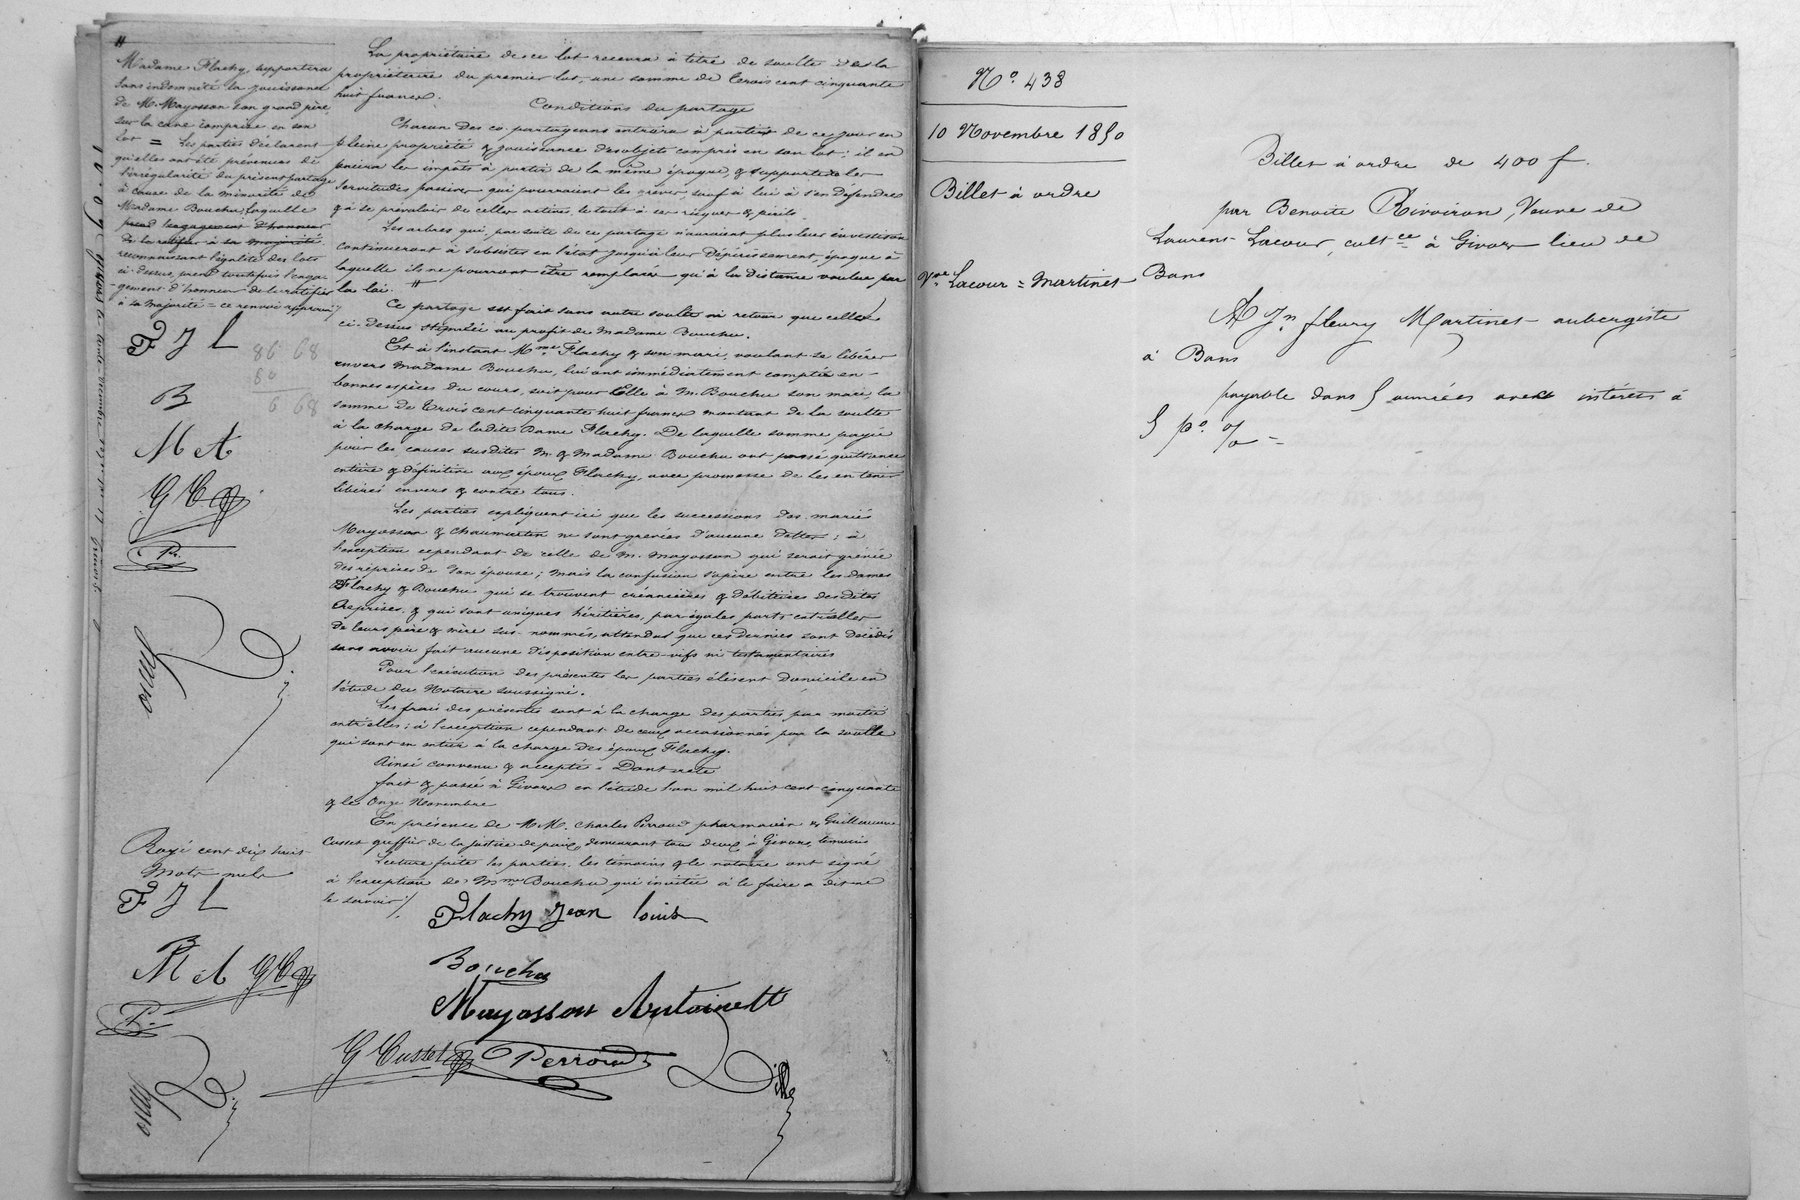 #
Madame Flachy, supportera
sans indemnité la jouissance
de M. Mayosson son grand père
sur la cave comprise en son
lot = Les parties déclarent
qu'elles ont été prévenues de
l'irrégularité du présent partage
à cause de la minorité de
Madame Bouchu, laquelle
prend l'engagement d'honneur
de la ratifier à sa majorité.
reconnaissant l'égalité des lots
ci-dessus, prend toutefois l'enga-
gement d'honneur de le ratifier
à sa majorité = ce renvoi approuvé
F J L
86 68
80
6 68
B
M A
G C
P.
Rayé cent dix huit
Mots nuls
F J L
B
M A G C
P.
La propriétaire de ce lot recevra à titre de soulte de la
propriétaire du premier lot, une somme de trois cent cinquante
huit francs.
Conditions du partage
Chacun des co-partageans entrera à partir de ce jour en
pleine propriété & jouissance des objets compris en son lot; il en
paiera les impôts à partir de la même époque, & supportera les
servitudes passives qui pourraient les grever, sauf à lui à s'en défendre
& à se prévaloir de celles actives, le tout à ses risques & périls.
Les arbres qui, par suite de ce partage n'auraient plus leur
continueront à subsister en l'état jusqu'à leur dépérissement, époque à
laquelle ils ne pourront être remplacés qu'à la distance voulue par
la loi. #
Ce partage est fait sans autre soulte ni retour que celle
ci-dessus stipulée au profit de Madame Bouchu.
Et à l'instant Mme Flachy & son mari, voulant se libérer
envers Madame Bouchu, lui ont immédiatement compté en
bonnes espèces du cours, soit pour Elle à M. Bouchu son mari, la
somme de Trois cent cinquante huit francs montant de la soulte
à la charge de ladite Dame Flachy. De laquelle somme payée
pour les causes susdites M. & Madame Bouchu ont passé quittance
entière & définitive aux époux Flachy, avec promesse de les en tenir
libérés envers & contre tous.
Les parties expliquent ici que les successions des mariés
Mayosson & Chaumartin ne sont grevées d'aucune dettes; à
l'exception cependant de celle de M. Mayosson qui serait grevée
des reprises de son épouse; mais la confusion s'opère entre les dames
Flachy & Bouchu qui se trouvent créancières & débitrices desdites
Reprises, & qui sont uniques héritières, par égales parts entr'elles
de leurs père & mère sus-nommés, attendu que ces derniers sont décédés
sans avoir fait aucune disposition entre-vifs ni testamentaires
Pour l'exécution des présentes les parties élisent Domicile en
l'étude du Notaire soussigné.
Les frais des présentes sont à la charge des parties par moitié
entr'elles; à l'exception cependant de ceux occasionnés par la soulte
qui sont en entier à la charge des époux Flachy.
Ainsi convenu & accepté = Dont acte
fait & passé à Givors en l'étude l'an mil huit cent cinquante
& le Onze Novembre
En présence de MM. Charles Perroud pharmacien & Guillaume
Cusset greffier de la justice de paix, demeurant tous deux à Givors, témoins
Lecture faite les parties, les témoins & le notaire ont signé
à l'exception de Mme Bouchu qui invitée à le faire a dit ne
le savoir /.
Flachy Jean louis
Bouchu
Mayosson Antoinette
G Cusset Perroud
No. 438
10 Novembre 1850
Billet à ordre
Vve Lacour = Martinet
Billet à ordre de 400 f.
par Benoite Rivoiron, Veuve de
Laurent Lacour, cultce à Givors lieu de
Bans
A Jn fleury Martinet aubergiste
à Bans
payable dans 5 années avec intérêts à
5 po %